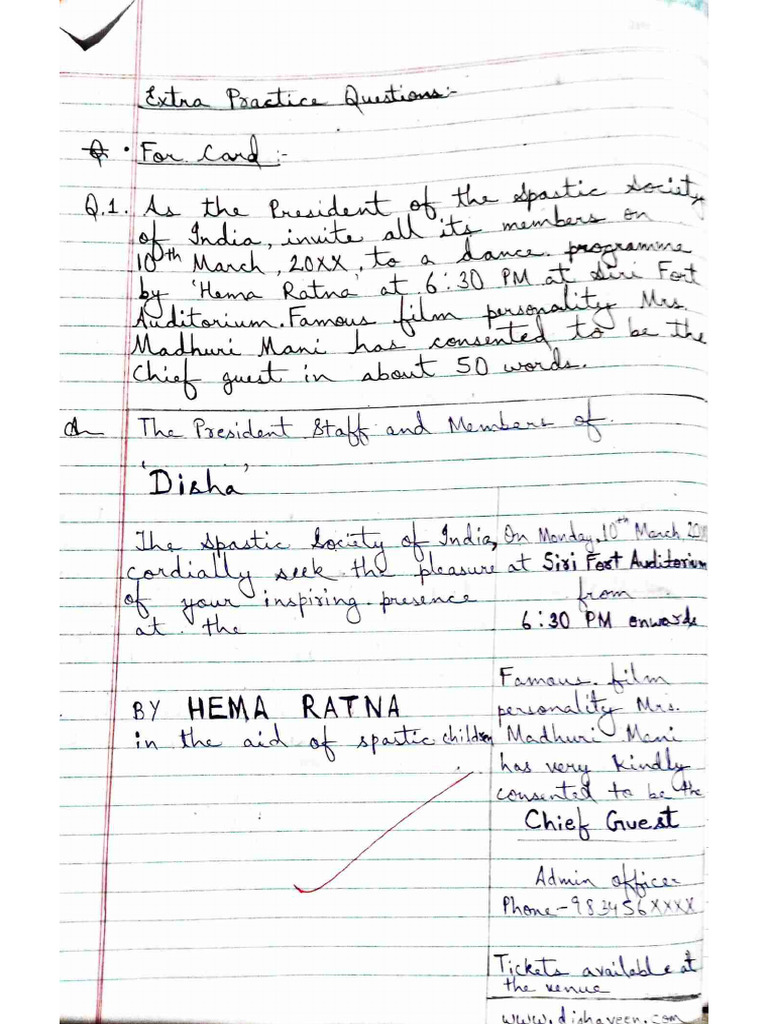 Extra Practice Questions:-
For Card :-
Q.1. As the President of the Spastic Society
of India, invite all its members on
10th March, 20XX, to a dance programme
by 'Hema Ratna' at 6:30 PM at Siri Fort
Auditorium. Famous film personality Mrs.
Madhuri Mani has consented to be the
Chief guest in about 50 words.
The President Staff and Members of
'Disha'
The Spastic Society of India,
cordially seek the pleasure
of your inspiring presence
at the
BY HEMA RATNA
in the aid of spastic children
On Monday, 10th March
at Siri Fort Auditorium
from
6:30 PM onwards
Famous film
personality Mrs.
Madhuri Mani
has very kindly
consented to be the
Chief Guest
Admin officer
Phone-983456XXXX
Tickets available at
the venue